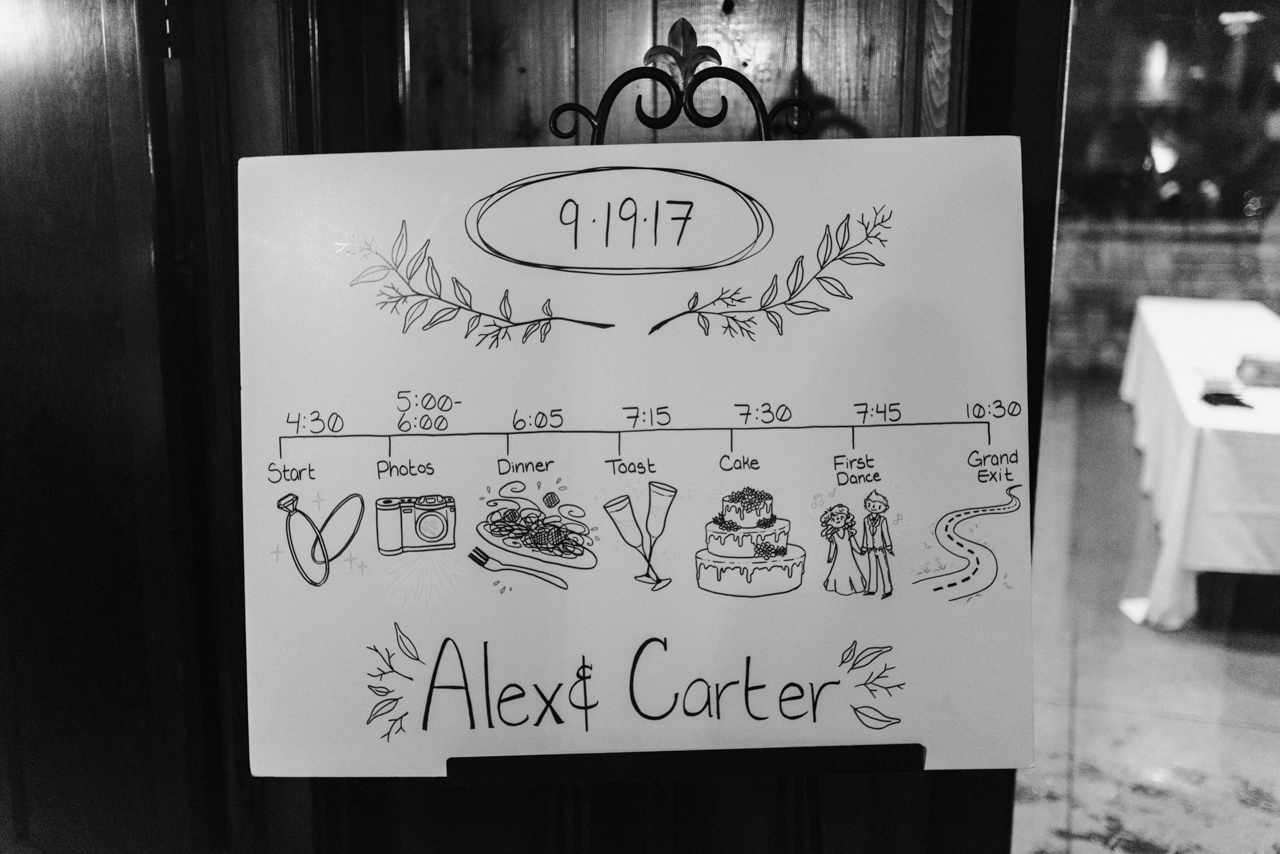 9·19·17
4:30
5:00-
6:00
6:05
7:15
7:30
7:45
10:30
Start
Photos
Dinner
Toast
Cake
First
Dance
Grand
Exit
Alex & Carter